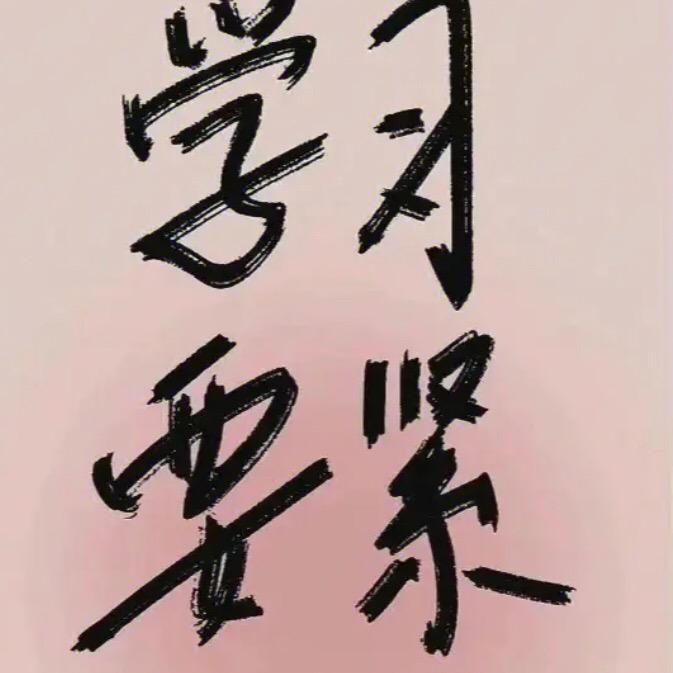 学习
要紧